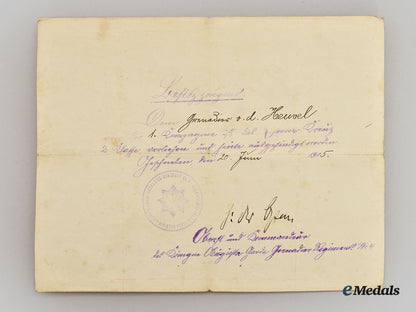 Besitzzeugnis
Dem Grenadier v. d. Heuvel
1. Kompagnie ist das Eiserne Kreuz
2. Klasse verliehen und heute ausgehändigt worden.
den 20. Juni 1915.
Oberst und Kommandeur
des Königin Augusta Garde Grenadier Regiments No 4
eMedals